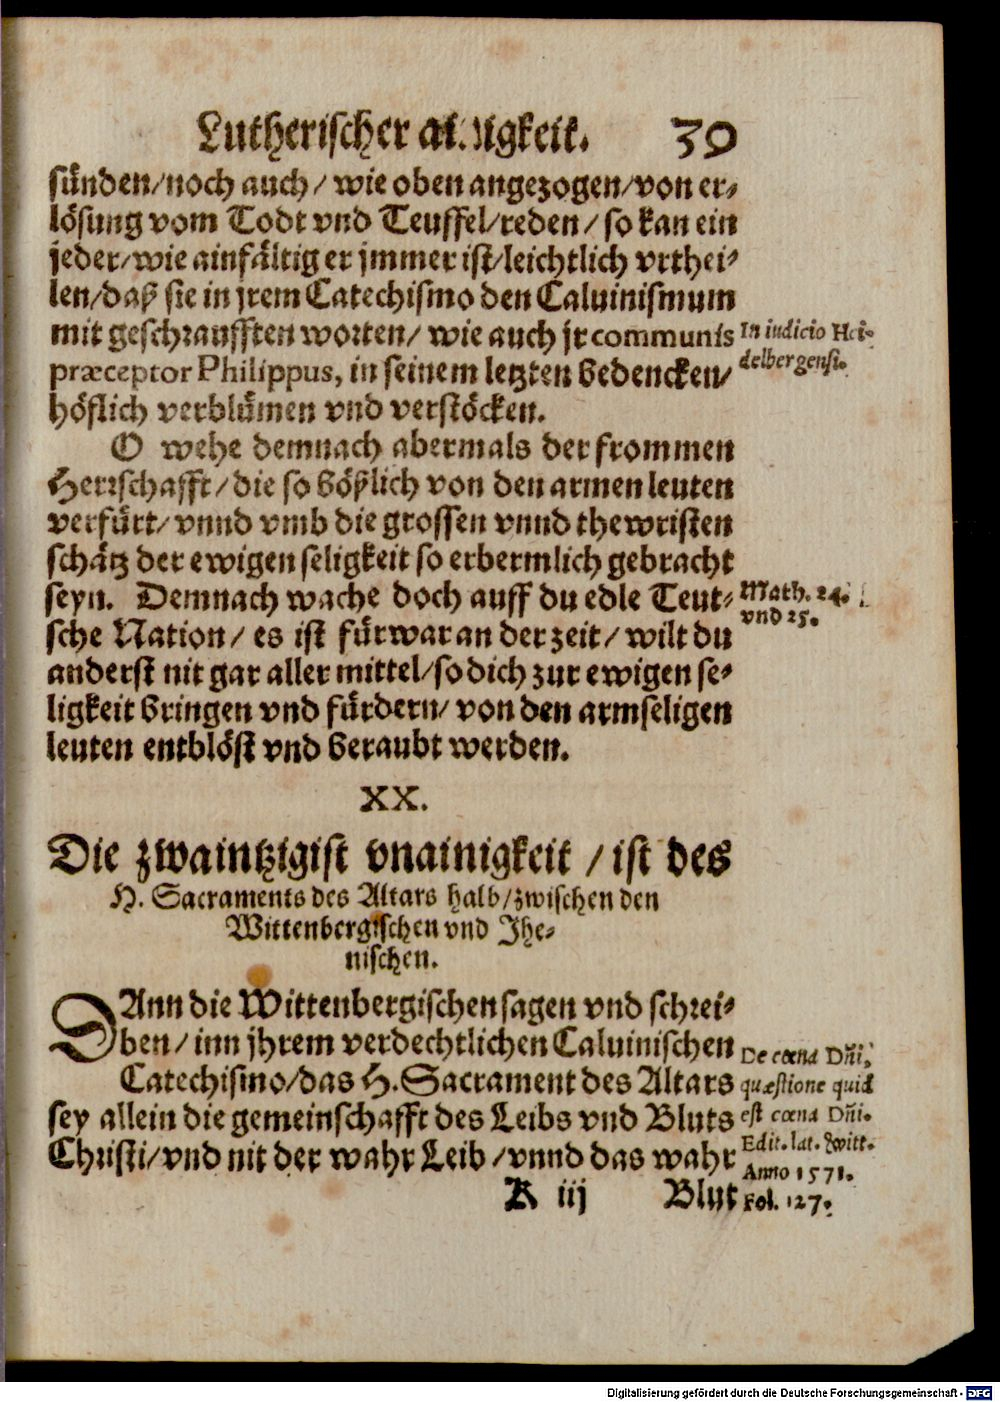 Lutherischer ainigkeit. 39
sünden/noch auch/ wie oben angezogen/von er-
lösung vom Todt vnd Teuffel/reden/ so kan ein
jeder/wie ainfältig er jmmer ist/leichtlich vrthei-
len/daß sie in jrem Catechismo den Caluinismum
mit geschraufften worten/ wie auch jr communis
præceptor Philippus, in seinem letzten bedencken/
höflich verblümen vnd verstöcken.
In iudicio Hei-
delbergensi.
O wehe demnach abermals der frommen
Herrschafft/die so bößlich von den armen leuten
verfürt/vnnd vmb die grossen vnnd thewristen
schätz der ewigen seligkeit so erbermlich gebracht
seyn. Demnach wache doch auff du edle Teut-
sche Nation/ es ist fürwar an der zeit/ wilt du
anderst nit gar aller mittel/so dich zur ewigen se-
ligkeit bringen vnd fürdern/ von den armseligen
leuten entblöst vnd beraubt werden.
Math. 24.
vnd 25.
XX.
Die zwaintzigist vnainigkeit /ist des
H. Sacraments des Altars halb/zwischen den
Wittenbergischen vnd Jhe-
nischen.
DAnn die Wittenbergischen sagen vnd schrei-
ben/ inn jhrem verdechtlichen Caluinischen
Catechismo/das H. Sacrament des Altars
sey allein die gemeinschafft des Leibs vnd Bluts
Christi/vnd nit der wahr Leib /vnnd das wahr
De cœna Dñi,
quæstione quid
est cœna Dñi.
Edit. lat. Witt.
Anno 1571.
Fol. 127.
K iij Blut
Digitalisierung gefördert durch die Deutsche Forschungsgemeinschaft - DFG